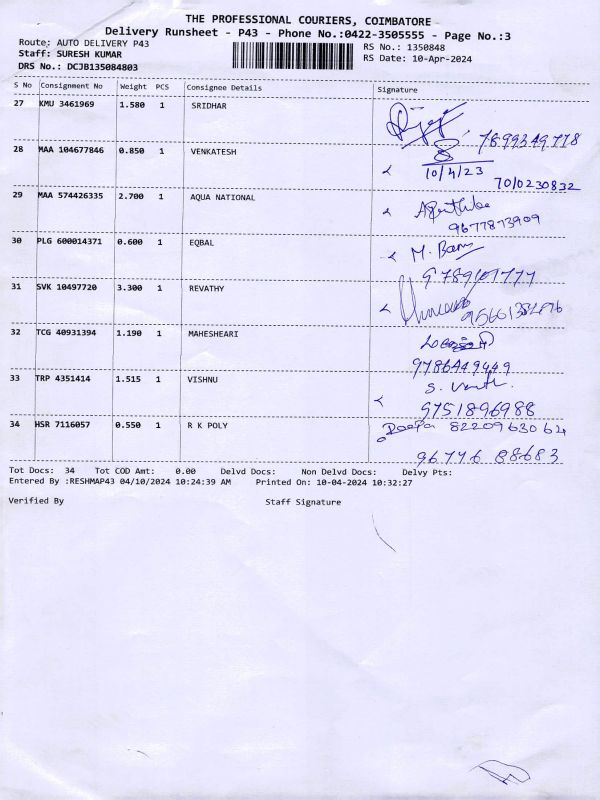 THE PROFESSIONAL COURIERS, COIMBATORE
Delivery Runsheet - P43 - Phone No.:0422-3505555 - Page No.:3
Route: AUTO DELIVERY P43 RS No.: 1350848
Staff: SURESH KUMAR RS Date: 10-Apr-2024
DRS No.: DCJB135084803
S No Consignment No Weight PCS Consignee Details Signature
27 KMU 3461969 1.580 1 SRIDHAR
7899349778
28 MAA 104677846 0.850 1 VENKATESH
10/4/23
7010230832
29 MAA 574426335 2.700 1 AQUA NATIONAL
9677873909
30 PLG 600014371 0.600 1 EQBAL
M.
31 SVK 10497720 3.300 1 REVATHY
32 TCG 40931394 1.190 1 MAHESHEARI
9786449449
33 TRP 4351414 1.515 1 VISHNU
S.
9751896988
34 HSR 7116057 0.550 1 R K POLY
Deepa 8220963062
96776 88683
Tot Docs: 34 Tot COD Amt: 0.00 Delvd Docs: Non Delvd Docs: Delvy Pts:
Entered By :RESHMAP43 04/10/2024 10:24:39 AM Printed On: 10-04-2024 10:32:27
Verified By Staff Signature